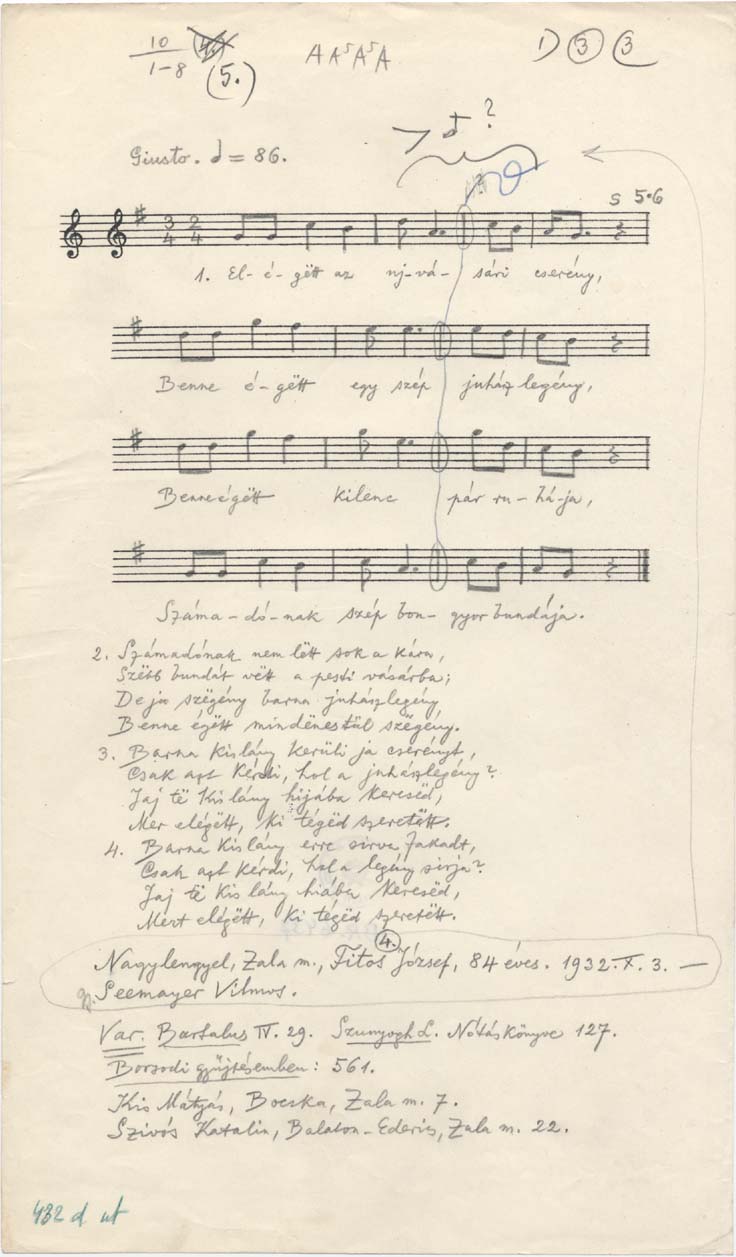 10 (4.)
1-8 (5.)
A A⁵ A⁵ A
1) 3 3
?
Giusto. = 86.
s 5·6
3 2
4 4
1. El-é-gëtt az uj-vá-sári cserény,
Benne é-gëtt egy szép juhász legény,
Benne égëtt kilenc pár ru-há-ja,
Száma-dó-nak szép bon-gyor bundája.
2. Számadónak nem lëtt sok a kára,
Szëbb bundát vëtt a pesti vásárba;
De ja szëgény barna juhászlegény,
Benne égëtt mindënestül szëgény.
3. Barna kislány kerüli ja cserényt,
Csak azt kérdi, hol a juhászlegény?
Jaj të kislány hijába keresëd,
Mer elégëtt, ki tégëd szeretëtt.
4. Barna kislány erre sirva fakadt,
Csak azt kérdi, hol a legény sirja?
Jaj të kis lány hiába keresëd,
Mert elégëtt, ki tégëd szeretëtt.
4.
Nagylengyel, Zala m., Fitos József, 84 éves. 1932. X. 3. —
gy. Seemayer Vilmos.
Var. Bartalus IV. 29. Szunyogh L. Nótáskönyve 127.
Borsodi gyüjtésemben: 561.
Kis Mátyás, Bocska, Zala m. 7.
Szivós Katalin, Balaton-Ederics, Zala m. 22.
432 d ut